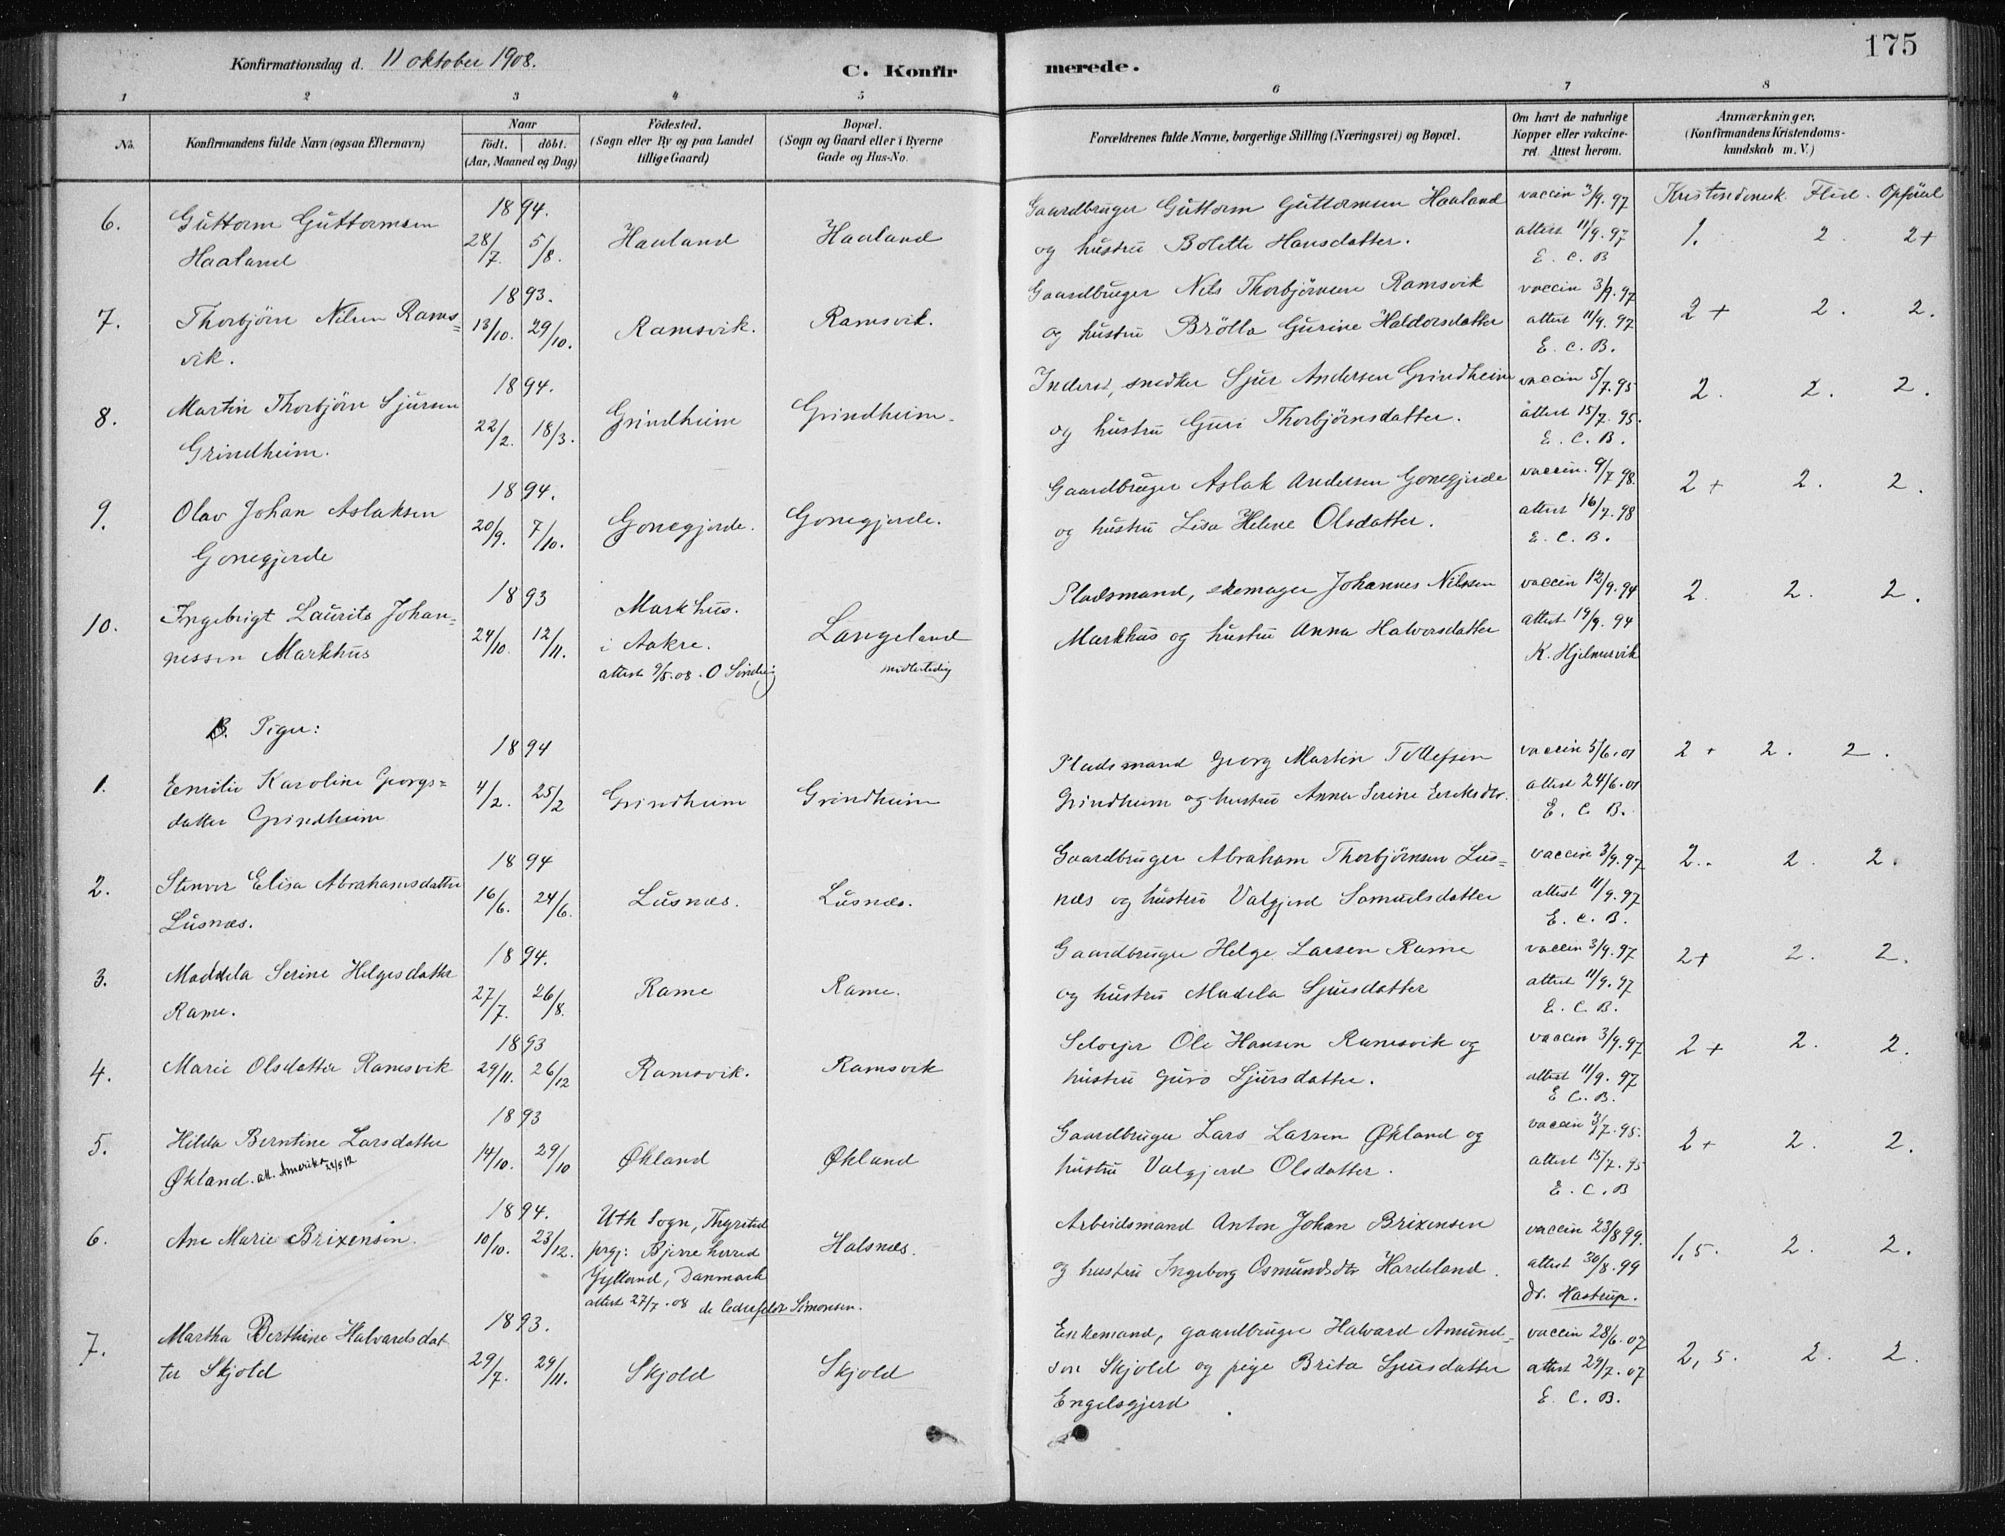 Konfirmationsdag d. 11 oktober 1908.
C. Konfirmerede.
175
1 2 3 4 5 6 7 8
No.
Konfirmandens fulde Navn (ogsaa Efternavn)
Naar
födt. döbt.
(Aar, Maaned og Dag)
Födested.
(Sogn eller By og paa Landet
tillige Gaard)
Bopæl.
(Sogn og Gaard eller i Byerne
Gade og Hus-No.
Forældrenes fulde Navne, borgerlige Stilling (Næringsvei) og Bopæl.
Om havt de naturlige
Kopper eller vakcine-
ret. Attest herom.
Anmærkninger.
(Konfirmandens Kristendoms-
kundskab m. V.)
Kristendomsk. Flid. Opførsel
6. Guttorm Guttormsen
Haaland
1894.
28/7. 5/8.
Haaland
Haaland
Gaardbruger Guttorm Guttormsen Haaland
og hustru Bolette Hansdatter.
vaccin 3/9.97
attest 11/9.97
E. C. B
1. 2. 2+
7. Thorbjörn Nilsen Rams=
vik.
1893.
13/10. 29/10.
Ramsvik.
Ramsvik.
Gaardbruger Nils Thorbjörnsen Ramsvik
og hustru Brölla Gurine Haldorsdatter
vaccin 3/9.97
attest 11/9.97
E. C. B.
2+ 2. 2.
8. Martin Thorbjörn Sjursen
Grindheim.
1894.
22/2. 18/3.
Grindheim
Grindheim.
Inderst, snedker Sjur Andersen Grindheim
og hustru Guri Thorbjörnsdatter.
vaccin 5/7.95
attest 15/7.95.
E. C. B.
2. 2. 2.
9. Olav Johan Aslaksen
Gonegjerde
1894.
20/9. 7/10.
Gonegjerde.
Gonegjerde.
Gaardbruger Aslak Andersen Gonegjerde
og hustru Lisa Helene Olsdatter.
vaccin. 9/7.98.
attest 16/7.98
E. C. B.
2+ 2. 2.
10. Ingebrigt Laurits Johan=
nessen Markhus
1893
24/10. 12/11.
Markhus.
i Aakre.
attest 9/5.08. O
Langeland
midlertidig
Pladsmand, skomager Johannes Nilssen
Markhus og hustru Anna Halvorsdatter
vaccin 12/9.94
attest 19/9.94
K. Hjelmervik
2. 2. 2.
B. Piger:
1. Emilie Karoline Georgs=
datter Grindheim
1894
4/2. 25/2
Grindheim
Grindheim
Pladsmand Georg Martin Tollefsen
Grindheim og hustru Anna Serine Eriksdtr.
vaccin 5/6.01
attest 24/6.01
E. C. B.
2+ 2. 2.
2. Stenvor Elisa Abrahamsdatter
Lusnæs.
1894
16/6. 24/6.
Lusnæs.
Lusnæs.
Gaardbruger Abraham Thorbjörnsen Lus=
næs og hustru Valgjerd Samuelsdatter
vaccin 3/9.97
attest 11/9.97
E. C. B.
2.. 2. 2.
3. Maddela Serine Helgesdatter
Rame.
1894.
27/7. 26/8.
Rame
Rame.
Gaardbruger Helge Larsen Rame
og hustru Madela Sjursdatter
vaccin 3/9.97
attest 11/9.97
E. C. B.
2+ 2. 2.
4. Marie Olsdatter Ramsvik
1893
29/11. 26/12
Ramsvik.
Ramsvik
Selveier Ole Hansen Ramsvik og
hustru Guro Sjursdatter.
vaccin 3/9.97
attest 11/9.97
E C. B.
2+ 2. 2.
5. Hilda Berntine Larsdatter
Økland. att. Amerika 22/5 12
1893
14/10. 29/10
Økland
Økland
Gaardbruger Lars Larsen Økland og
hustru Valgjerd Olsdatter.
vaccin 3/7.95.
attest 15/7.95
E. C. B
2+ 2. 2.
6. Ane Marie Brixensen.
1894.
10/10. 23/12.
Uth Sogn, Thyrsted
prgj: Bjerre herred
Jylland, Danmark
attest 27/7.08 Simonsen.
Halsnæs.
Arbeidsmand Anton Johan Brixensen
og hustru Ingeborg Osmundsdtr Hardeland.
vaccin 23/8 99.
attest 30/8.99
dr. Hastrup.
1,5. 2. 2.
7. Martha Berthine Halvardsdat
ter Skjold
1893.
29/7. 29/11.
Skjold
Skjold
Enkemand, gaardbruger Halvard Amund=
sen Skjold og pige Brita Sjursdatter
Engelsgjerd
vaccin 28/6.07
attest 29/7.07
E. C. B.
2,5. 2. 2.